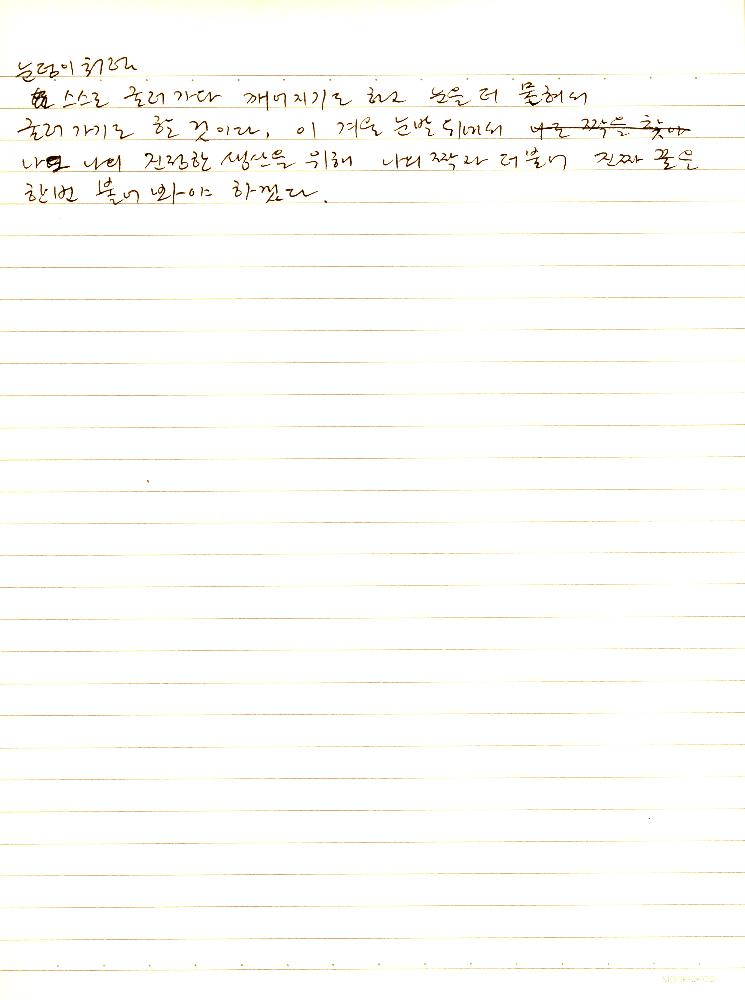 눈덩이처럼
스스로 굴러가다 깨어지기도 하고 눈을 더 묻혀서
굴러가기도 할 것이다. 이 겨울 눈발 위에서 나도 짝을 찾아
나도 나의 진정한 생산을 위해 나의 짝과 더불어 진짜 꿀은
한번 불어 봐야 하겠다.